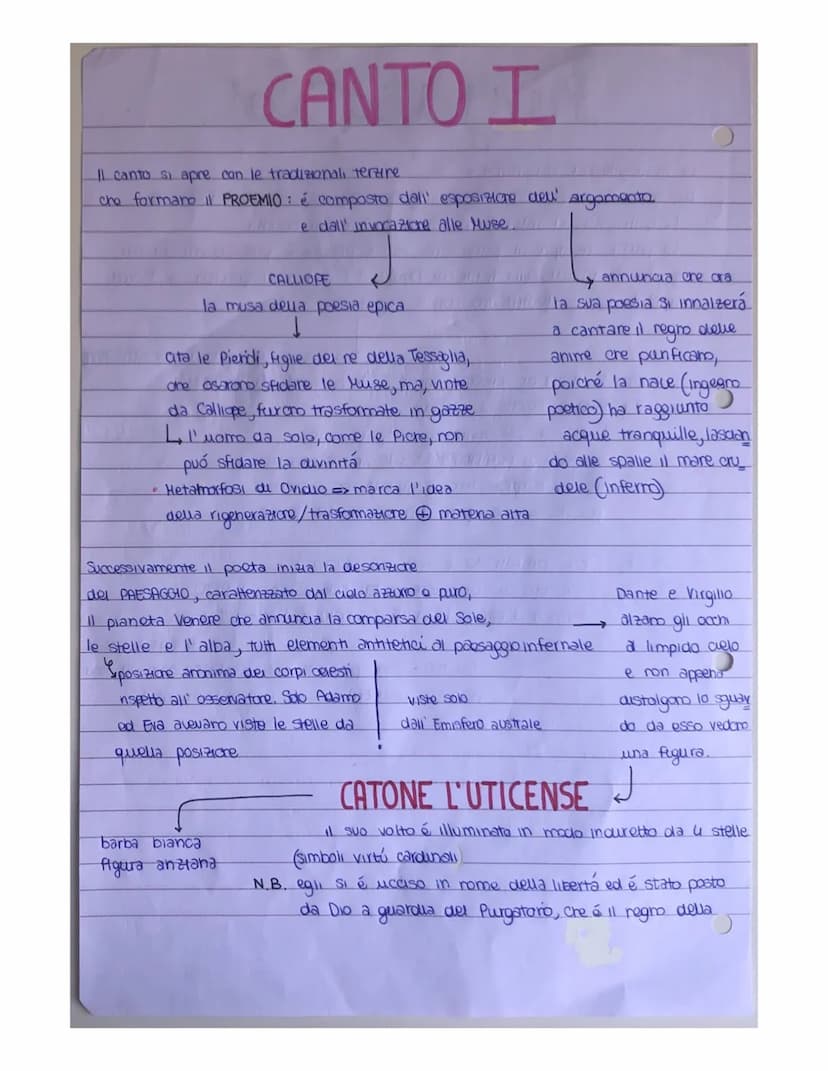 CANTO I
Il canto si apre con le tradizionali terzine
che formano il PROEMIO: é composto dall' esposizione dell' argomento
e dall' invocazione alle Muse.
CALLIOPE
la musa della poesia epica
cita le Pieridi, figlie del re della Tessaglia,
che osarono sfidare le Muse, ma, vinte
da Calliope, furono trasformate in gazze
↳ l'uomo da solo, come le Piche, non
puó sfidare la divinitá
• Metamorfosi di Ovidio => marca l'idea
della rigenerazione/trasformazione ⊕ materia alta
annuncia che ora
la sua poesia si innalzerá
a cantare il regno delle
anime che purificano,
poiché la nave (ingegno
poetico) ha raggiunto
acque tranquille, lascian
do alle spalle il mare cru_
dele (inferno)
Successivamente il poeta inizia la descrizione
del PAESAGGIO, caratterizzato dal cielo azzurro e puro,
il pianeta Venere che annuncia la comparsa del Sole,
le stelle e l'alba, tutti elementi antitetici al paesaggio infernale
posizione anonima dei corpi celesti
rispetto all' osservatore. Solo Adamo
ed Eva avevano visto le stelle da
quella posizione
viste solo
dall' Emisfero australe
Dante e Virgilio
alzano gli occhi
al limpido cielo
e non appena
distolgono lo sguar
do da esso vedono
una figura.
CATONE L'UTICENSE
barba bianca
figura anziana
il suo volto é illuminato in modo indiretto da 4 stelle
(simboli virtú cardinali)
N.B. egli si é ucciso in nome della libertá ed é stato posto
da Dio a guardia del Purgatorio, che é il regno della